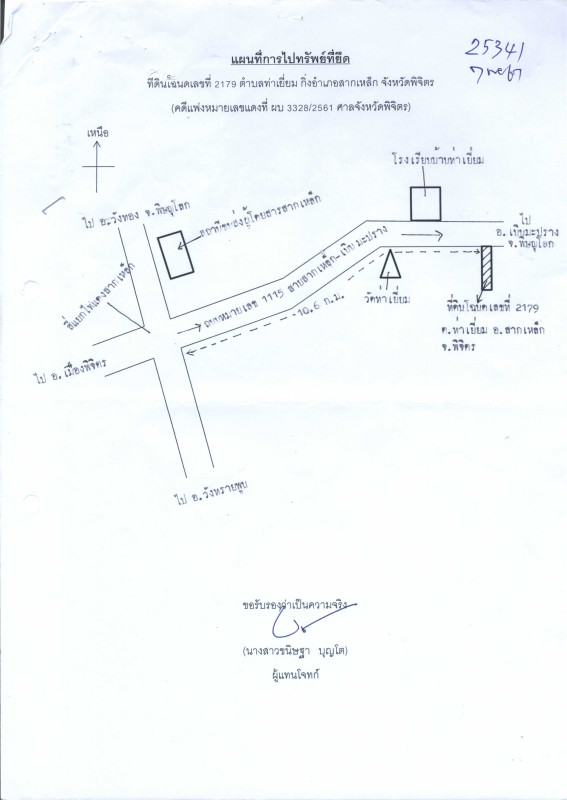 แผนที่การไปทรัพย์ที่ยึด
25341
ที่ดินโฉนดเลขที่ 2179 ตำบลท่าเยี่ยม กิ่งอำเภอสากเหล็ก จังหวัดพิจิตร
(คดีแพ่งหมายเลขแดงที่ ผบ 3328/2561 ศาลจังหวัดพิจิตร)
เหนือ
โรงเรียนบ้านท่าเยี่ยม
ไป อ.วังทอง จ.พิษณุโลก
สถานีขนส่งผู้โดยสารสากเหล็ก
ไป
อ.เนินมะปราง
จ.พิษณุโลก
สี่แยกไฟแดงสากเหล็ก
ถนนหมายเลข 1115 สายสากเหล็ก-เนินมะปราง
10.6 ก.ม.
วัดท่าเยี่ยม
ที่ดินโฉนดเลขที่ 2179
ต.ท่าเยี่ยม อ.สากเหล็ก
จ.พิจิตร
ไป อ.เมืองพิจิตร
ไป อ.วังทรายพูน
ขอรับรองว่าเป็นความจริง
(นางสาวชนิษฐา บุญโต)
ผู้แทนโจทก์